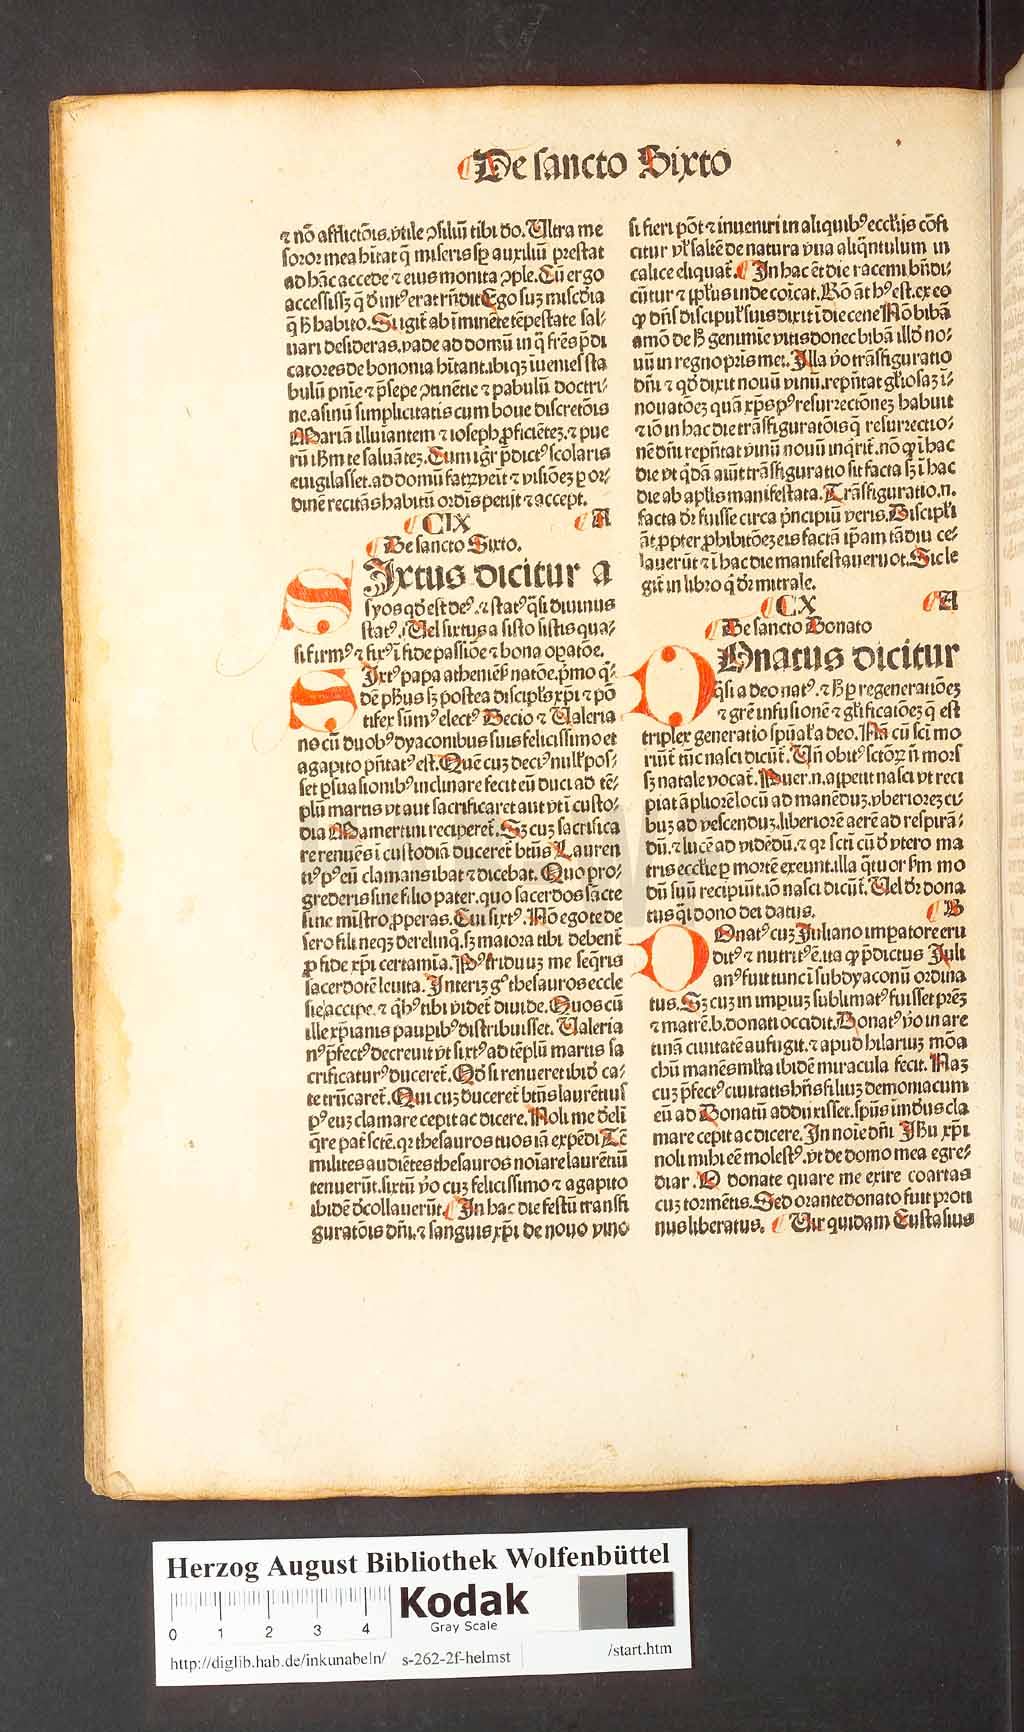 De sancto Sixto
⁊ nō afflictōis. vtile ↄsiliū tibi do. Ultra me
soror mea hītat q̄ miseris sp̱ auxiliū prestat
ad hāc accede ⁊ eius monita ↄple. Cū ergo
accessissꝫ q̄ d̄ intꝰ erat rn̄dit Ego suꝫ miscd̄ia
q̄ h̄ habito. Si git̄ ab īminēte tēpestate sal⸗
uari desideras. vade ad domū in q̄ fr̄es p̄di
catores de bononia hītant. ibiqꝫ inuenies sta
bulū pnīe ⁊ p̄sepe ↄtinētie ⁊ pabulū doctri⸗
ne. asinū simplicitatis cum boue discretōis
Mariā illuminantem ⁊ ioseph ꝓficiēteꝫ. ⁊ pue
rū ihm̄ te saluāteꝫ. Cum igr̄ p̄dictꝰ scolaris
euigilasset. ad domū fatrꝝ veīt ⁊ visiōeꝫ ꝑ or⸗
dinē recitās habitū ordīs petijt ⁊ accept.
CIX A
De sancto Sixto.
SIxtus dicitur a
syos qd̄ est deꝰ. ⁊ statꝰ q̄si diuinus
statꝰ. Vel sixtus a sisto sistis qua⸗
si firmꝰ ⁊ fixꝰ ī fide passiōe ⁊ bona oꝑatōe.
SIxtꝰ papa atheniēs̄ natōe. p̄mo q̄⸗
dē ph̄us sꝫ postea discipl̄s xp̄i ⁊ pō
tifex sūmꝰ electꝰ Decio ⁊ Valeria
no cū duobꝰ dyaconibus suis felicissimo et
agapito pn̄tatꝰ est. Quē cuꝫ deciꝰ null̓ pos⸗
set ꝑsuasionibꝰ inclinare fecit eū duci ad tē⸗
plū martis vt aut sacrificaret aut vt ī custo⸗
dia Mamertini reciperet̄. Sꝫ cuꝫ sacrifica
re renuēs ī custodiā duceret̄ bt̄us Lauren
tiꝰ pꝰ eū clamans ibat ⁊ dicebat. Quo pro⸗
grederis sine filio pater. quo sacerdos sācte
sine mistro ꝓperas. Cui sixtꝰ. Nō ego te de
sero fili neqꝫ derelinq̊. sꝫ maiora tibi debent̄
ꝓ fide xp̄i certamīa. Pꝰ triduuꝫ me seq̄ris
sacerdotē leuita. Interiꝫ gͦ thesauros eccle
sie accipe. ⁊ q̄bꝰ tibi videt̄ diuide. Quos cū
ille xp̄ianis pauꝑibꝰ distribuisset. Valeria
nꝰ p̄fectꝰ decreuit vt sixtꝰ ad tēplū martis sa
crificaturꝰ duceret̄. Qd̄ si renueret ibid̄ ca⸗
te trūcaret̄. Qui cuꝫ duceret̄ bt̄us laurētius
pꝰ euꝫ clamare cepit ac dicere. Noli me d̄elī
q̄re pat̄ sctē. qꝛ thesauros tuos iā expēdi Tc̄
milites audiētes thesauros noīare laurētiū
tenuerūt. sixtū ꝟo cuꝫ felicissimo ⁊ agapito
ibidē d̄collauerūt. In hac die festū transfi
guratōis dn̄i. ⁊ sanguis xp̄i de nouo vino
si fieri pōt ⁊ inueniri in aliquibꝰ eccl̓ijs cōfi
citur vl̓ saltē de natura vua aliq̄ntulum in
calice eliquat̄. In hac ēt die racemi bn̄di⸗
cūtur ⁊ ppl̄us inde coīcat. Rō āt hꝰ est. ex eo
qꝫ dn̄s discipul̓ suis dixit ī die cene Nō bibā
amō de h̄ genimīe vitis donec bibā illd̄ no⸗
uū in regno pr̄is mei. Illa ꝟo trāsfiguratio
dn̄i ⁊ qd̄ dixit nouū vinū. repn̄tat gl̓iosaꝫ ī⸗
nouatōeꝫ quā xp̄s pꝰ resurrectōneꝫ habuit
⁊ iō in hac die trāsfiguratōis q̄ resurrectio⸗
nē dn̄i repn̄tat vinū nouū inq̄rit̄. nō qꝫ ī hac
die vt q̄dā aiūt trāsfiguratio sit facta sꝫ ī hac
die ab apl̓is manifestata. Trāsfiguratio.n.
facta dr̄ fuisse circa p̄ncipiū veris. Discipl̓i
āt ꝓpter ꝓhibitōeꝫ eis factā ip̄am tādiu ce⸗
lauerūt ⁊ ī hac die manifestauerūt. Sic le
git̄ in libro q̄ dr̄ mitrale.
CX A
De sancto Donato
DOnatus dicitur
q̄si a deo natꝰ. ⁊ h̄ ꝑ regenerationeꝫ
⁊ grē infusionē ⁊ gl̓ificatōeꝫ q̄ est
triplex generatio spūal̓ a deo. Nā cū sci mo
riūt̄ tūc nasci dicūt̄. Un̄ obitꝰ sctōꝝ n̄ mors
sꝫ natale vocat̄. Puer.n. aspirat nasci vt reci
piat āpliorē locū ad manēduꝫ. vberioreꝫ ci⸗
buꝫ ad vescenduꝫ. liberiorē aerē ad respirā⸗
dū. ⁊ lucē ad vidēdū. ⁊ qꝛ scti cū d̄ vtero ma
tris eccl̓ie ꝑ mortē exeunt. illa q̄tuor ẜm mo
dū suū recipiūt. iō nasci dicūt̄. Vel dr̄ dona
tus q̄si dono dei datus. B
DOnatꝰ cuꝫ Juliano imꝑatore eru
ditꝰ ⁊ nutritꝰ ē. ita qꝫ p̄dictus Juli
anꝰ fuit tunc ī subdyaconū ordina
tus. Sꝫ cuꝫ in imꝑiuꝫ sublimatꝰ fuisset pr̄eꝫ
⁊ matrē .b. donati occidit. Donatꝰ ꝟo in are
tinā ciuitatē aufugit. ⁊ apud hilariuꝫ mōa
chū manēs ml̓ta ibidē miracula fecit. Naꝫ
cuꝫ p̄fectꝰ ciuitatis hn̄s filiuꝫ demoniacum
eū ad Donatū adduxisset. spūs īmd̄us cla
mare cepit ac dicere. In noīe dn̄i Jh̄u xp̄i
noli mihi eē molestꝰ. vt de domo mea egre⸗
diar. O donate quare me exire coartas
cuꝫ tormētis. Sed orante donato fuit proti
nus liberatus. Uir quidam Eustasius
Herzog August Bibliothek Wolfenbüttel
0 1 2 3 4
Kodak
Gray Scale
http://diglib.hab.de/inkunabeln/ s-262-2f-helmst /start.htm